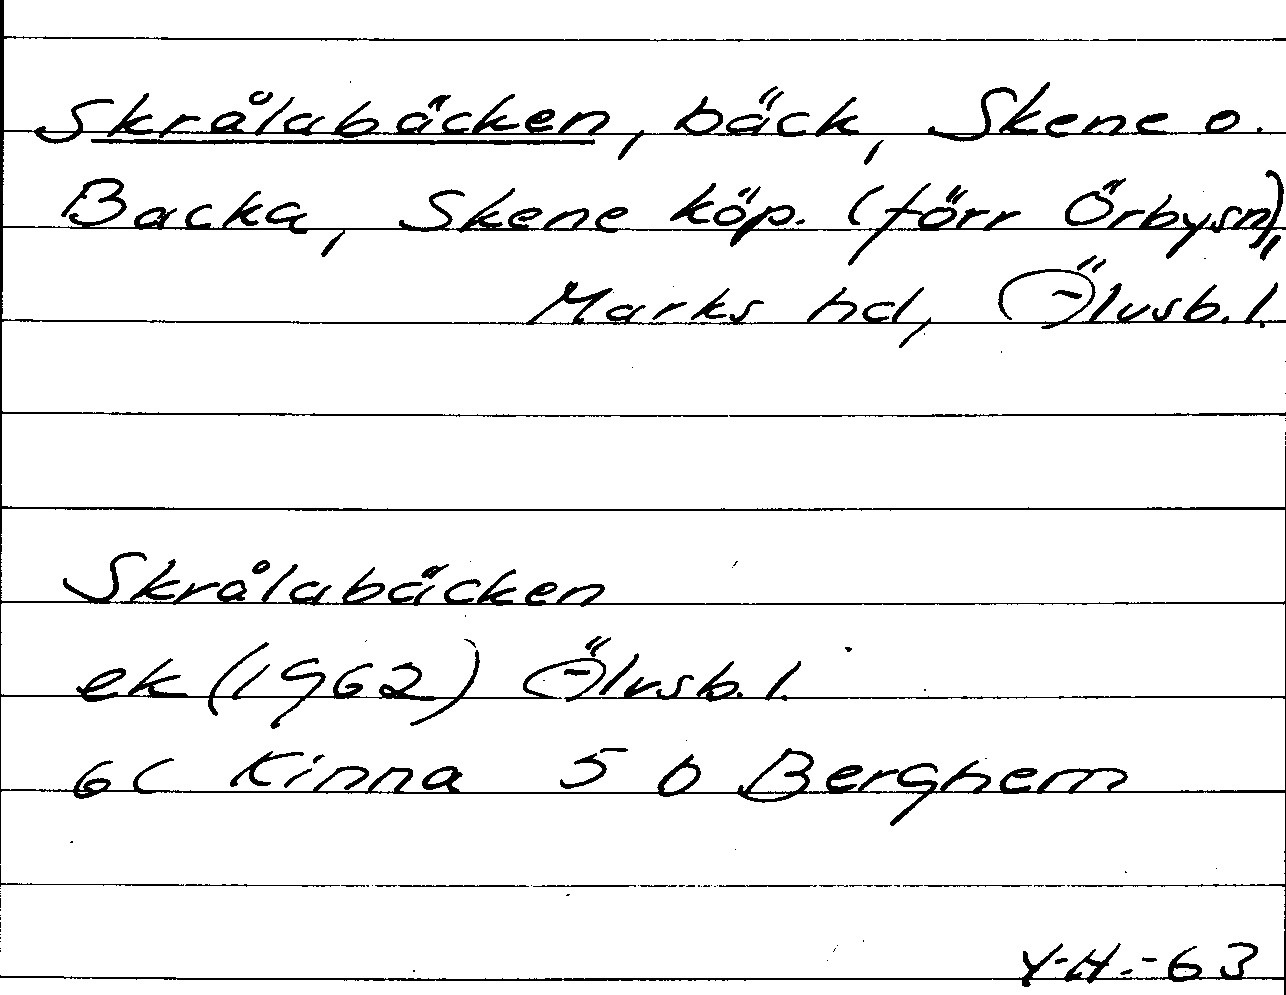 Skrålabäcken, bäck, Skene o.
Backa, Skene köp. (förr Örbysn),
Marks hd, Älvsb. l.
Skrålabäcken
ek (1962) Älvsb. l.
6C Kinna 5 b Berghem
Y.H.-63